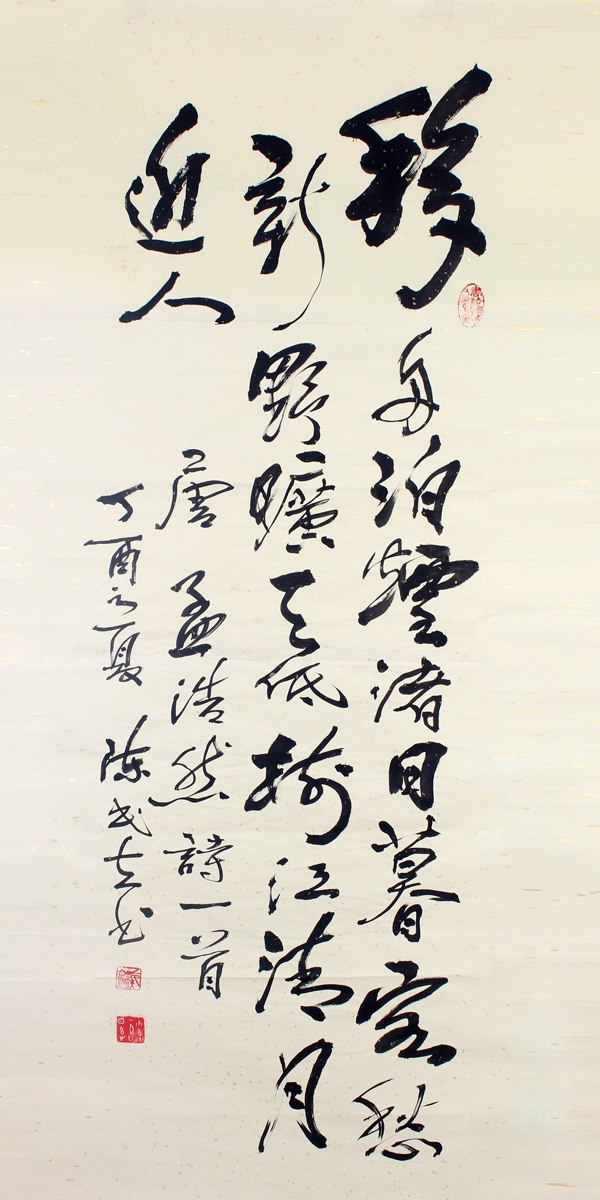 移舟泊煙渚日暮客愁
新野曠天低樹江清月
近人
唐孟浩然詩一首
丁酉之夏陳書